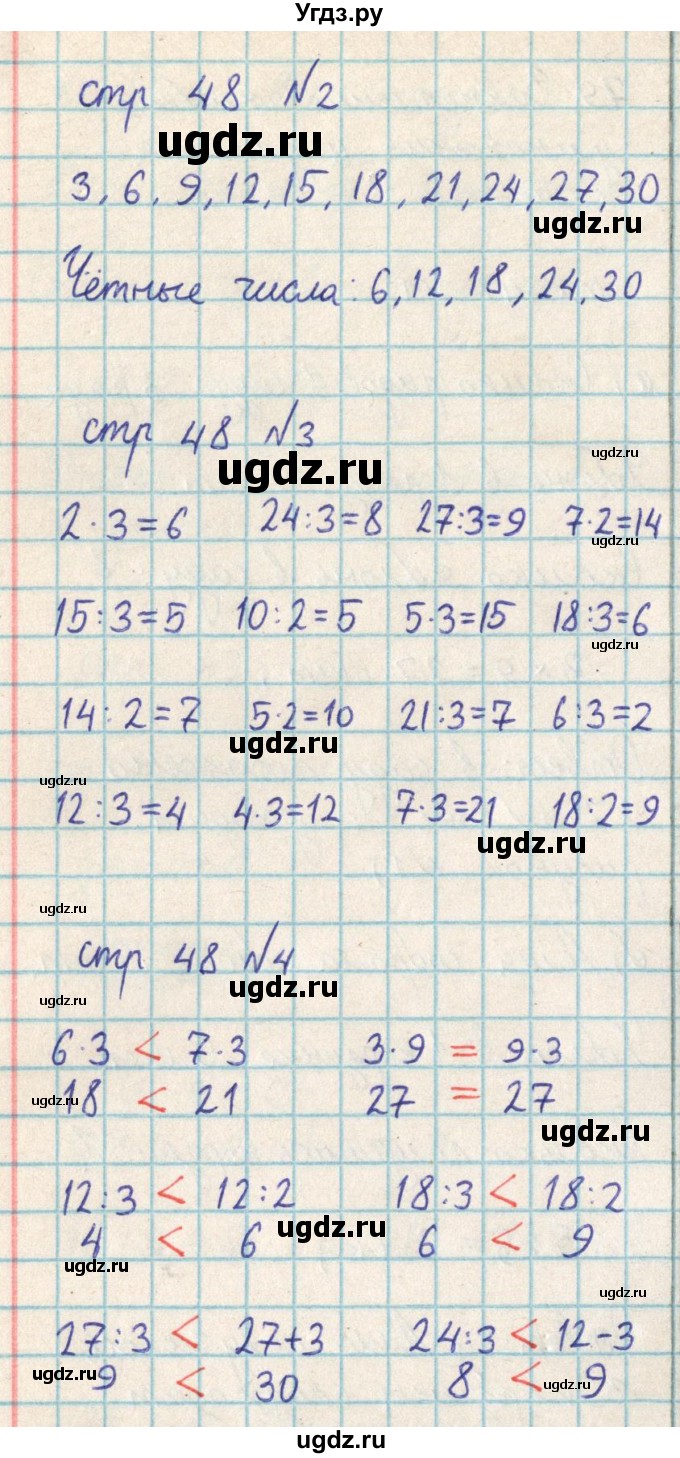 Угдз.ру
стр 48 №2
ugdz.ru
3, 6, 9, 12, 15, 18, 21, 24, 27, 30
ugdz.ru
Чётные числа: 6, 12, 18, 24, 30
стр 48 №3
ugdz.ru
ugdz.ru
2·3=6 24:3=8 27:3=9 7·2=14
ugdz.ru
15:3=5 10:2=5 5·3=15 18:3=6
ugdz.ru
14:2=7 5·2=10 21:3=7 6:3=2
ugdz.ru
ugdz.ru
12:3=4 4·3=12 7·3=21 18:2=9
ugdz.ru
ugdz.ru
стр 48 №4
ugdz.ru
ugdz.ru
6·3 < 7·3 3·9 = 9·3
ugdz.ru
18 < 21 27 = 27
ugdz.ru
12:3 < 12:2 18:3 < 18:2
ugdz.ru
4 < 6 6 < 9
ugdz.ru
ugdz.ru
27:3 < 27+3 24:3 < 12-3
ugdz.ru
9 < 30 8 < 9
ugdz.ru
ugdz.ru